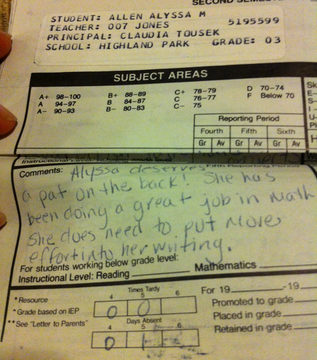 SECOND SEMES
STUDENT: ALLEN ALYSSA M 5195599
TEACHER: 007 JONES
PRINCIPAL: CLAUDIA TOUSEK
SCHOOL: HIGHLAND PARK GRADE: 03
SUBJECT AREAS
A+ 98-100 B+ 88-89 C+ 78-79 D 70-74
A 94-97 B 84-87 C 76-77 F Below 70
A- 90-93 B- 80-83 C- 75
Reporting Period
Fourth Fifth Sixth
Gr Av Gr Av Gr Av
Comments: Alyssa deserves
a pat on the back! She has
been doing a great job in math
She does need to put more
effort into her writing.
For students working below grade level:
Instructional Level: Reading Mathematics
Times Tardy
4 5 6
* Resource
* Grade based on IEP 0
** See "Letter to Parents"
Days Absent
4 5 6
0
For 19 -19
Promoted to grade
Placed in grade
Retained in grade